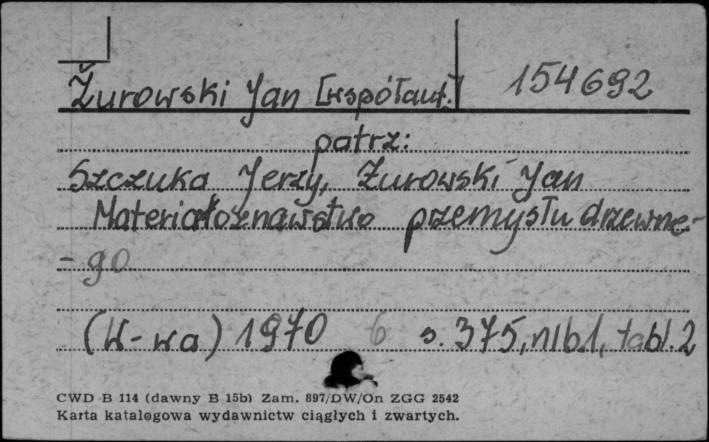 Żurowski Jan [współaut.] 154692
patrz:
Szczuka Jerzy, Żurowski Jan
Materiałoznawstwo przemysłu drzewne-
-go
(W-wa) 1970 6 s. 375, nlb.1, tabl. 2
CWD B 114 (dawny B 15b) Zam. 897/DW/On ZGG 2542
Karta katalogowa wydawnictw ciągłych i zwartych.